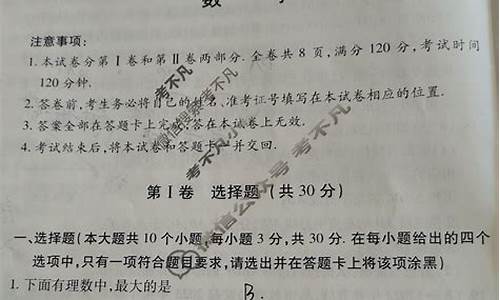 数
注意事项:
1. 本试卷分第 I 卷和第 II 卷两部分. 全卷共 8 页, 满分 120 分, 考试时间
120 分钟.
2. 答卷前, 考生务必将自己的姓名、准考证号填写在本试卷相应的位置.
3. 答案全部在答题卡上完成, 答在本试卷上无效.
4. 考试结束后, 将本试卷和答题卡一并交回.
第 I 卷 选择题 (共 30 分)
一、选择题(本大题共 10 个小题, 每小题 3 分, 共 30 分. 在每小题给出的四个
选项中, 只有一项符合题目要求, 请选出并在答题卡上将该项涂黑)
1. 下面有理数中, 最大的是
B.
微信搜索考不凡
考不凡
考不凡小
微信公众号 考不凡